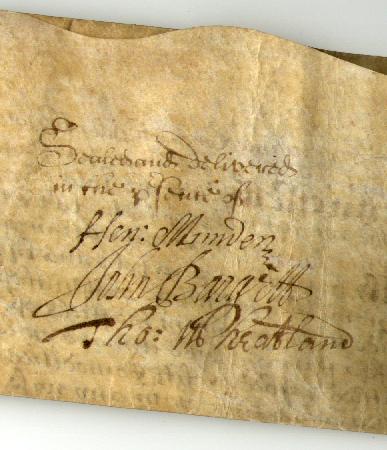 Sealed and delivered
in the psence of
Hen: Munden
John Barrett
Tho: Wheatland